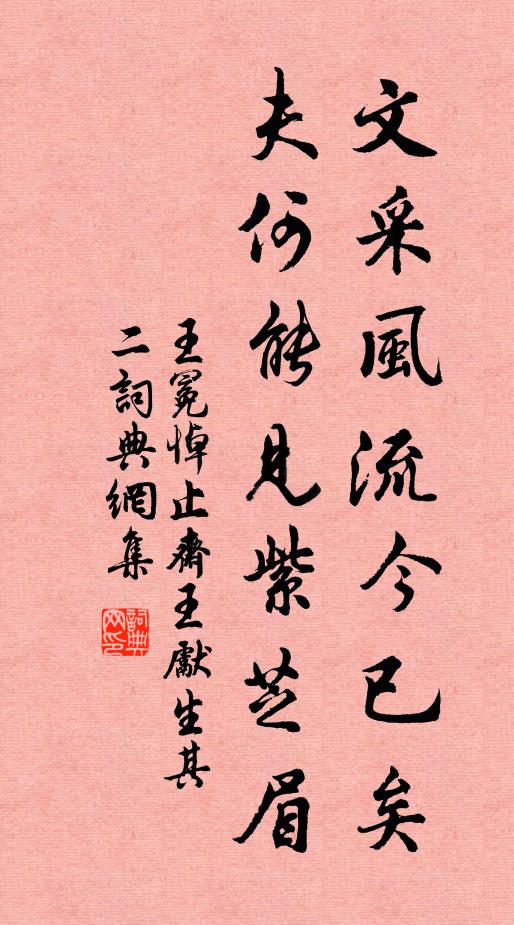 文采風流今已矣
夫何能見紫芝眉
王冕悼止齋王獻生其
二詞典網集
詞典網印